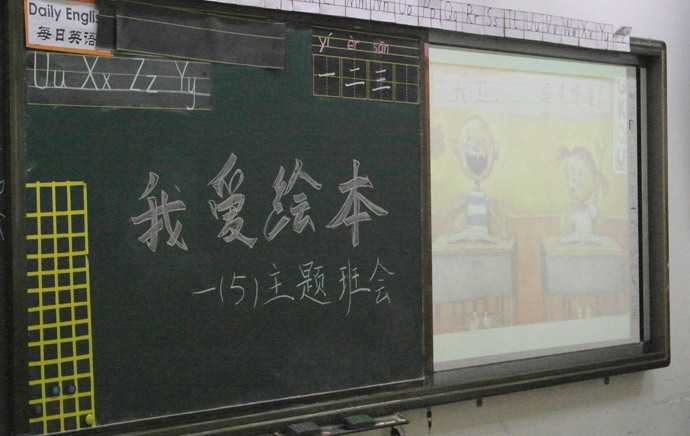 Daily Englis
每日英语
Uu Xx Zz Yy
yí èr sān
一 二 三
我爱绘本
一(5)主题班会